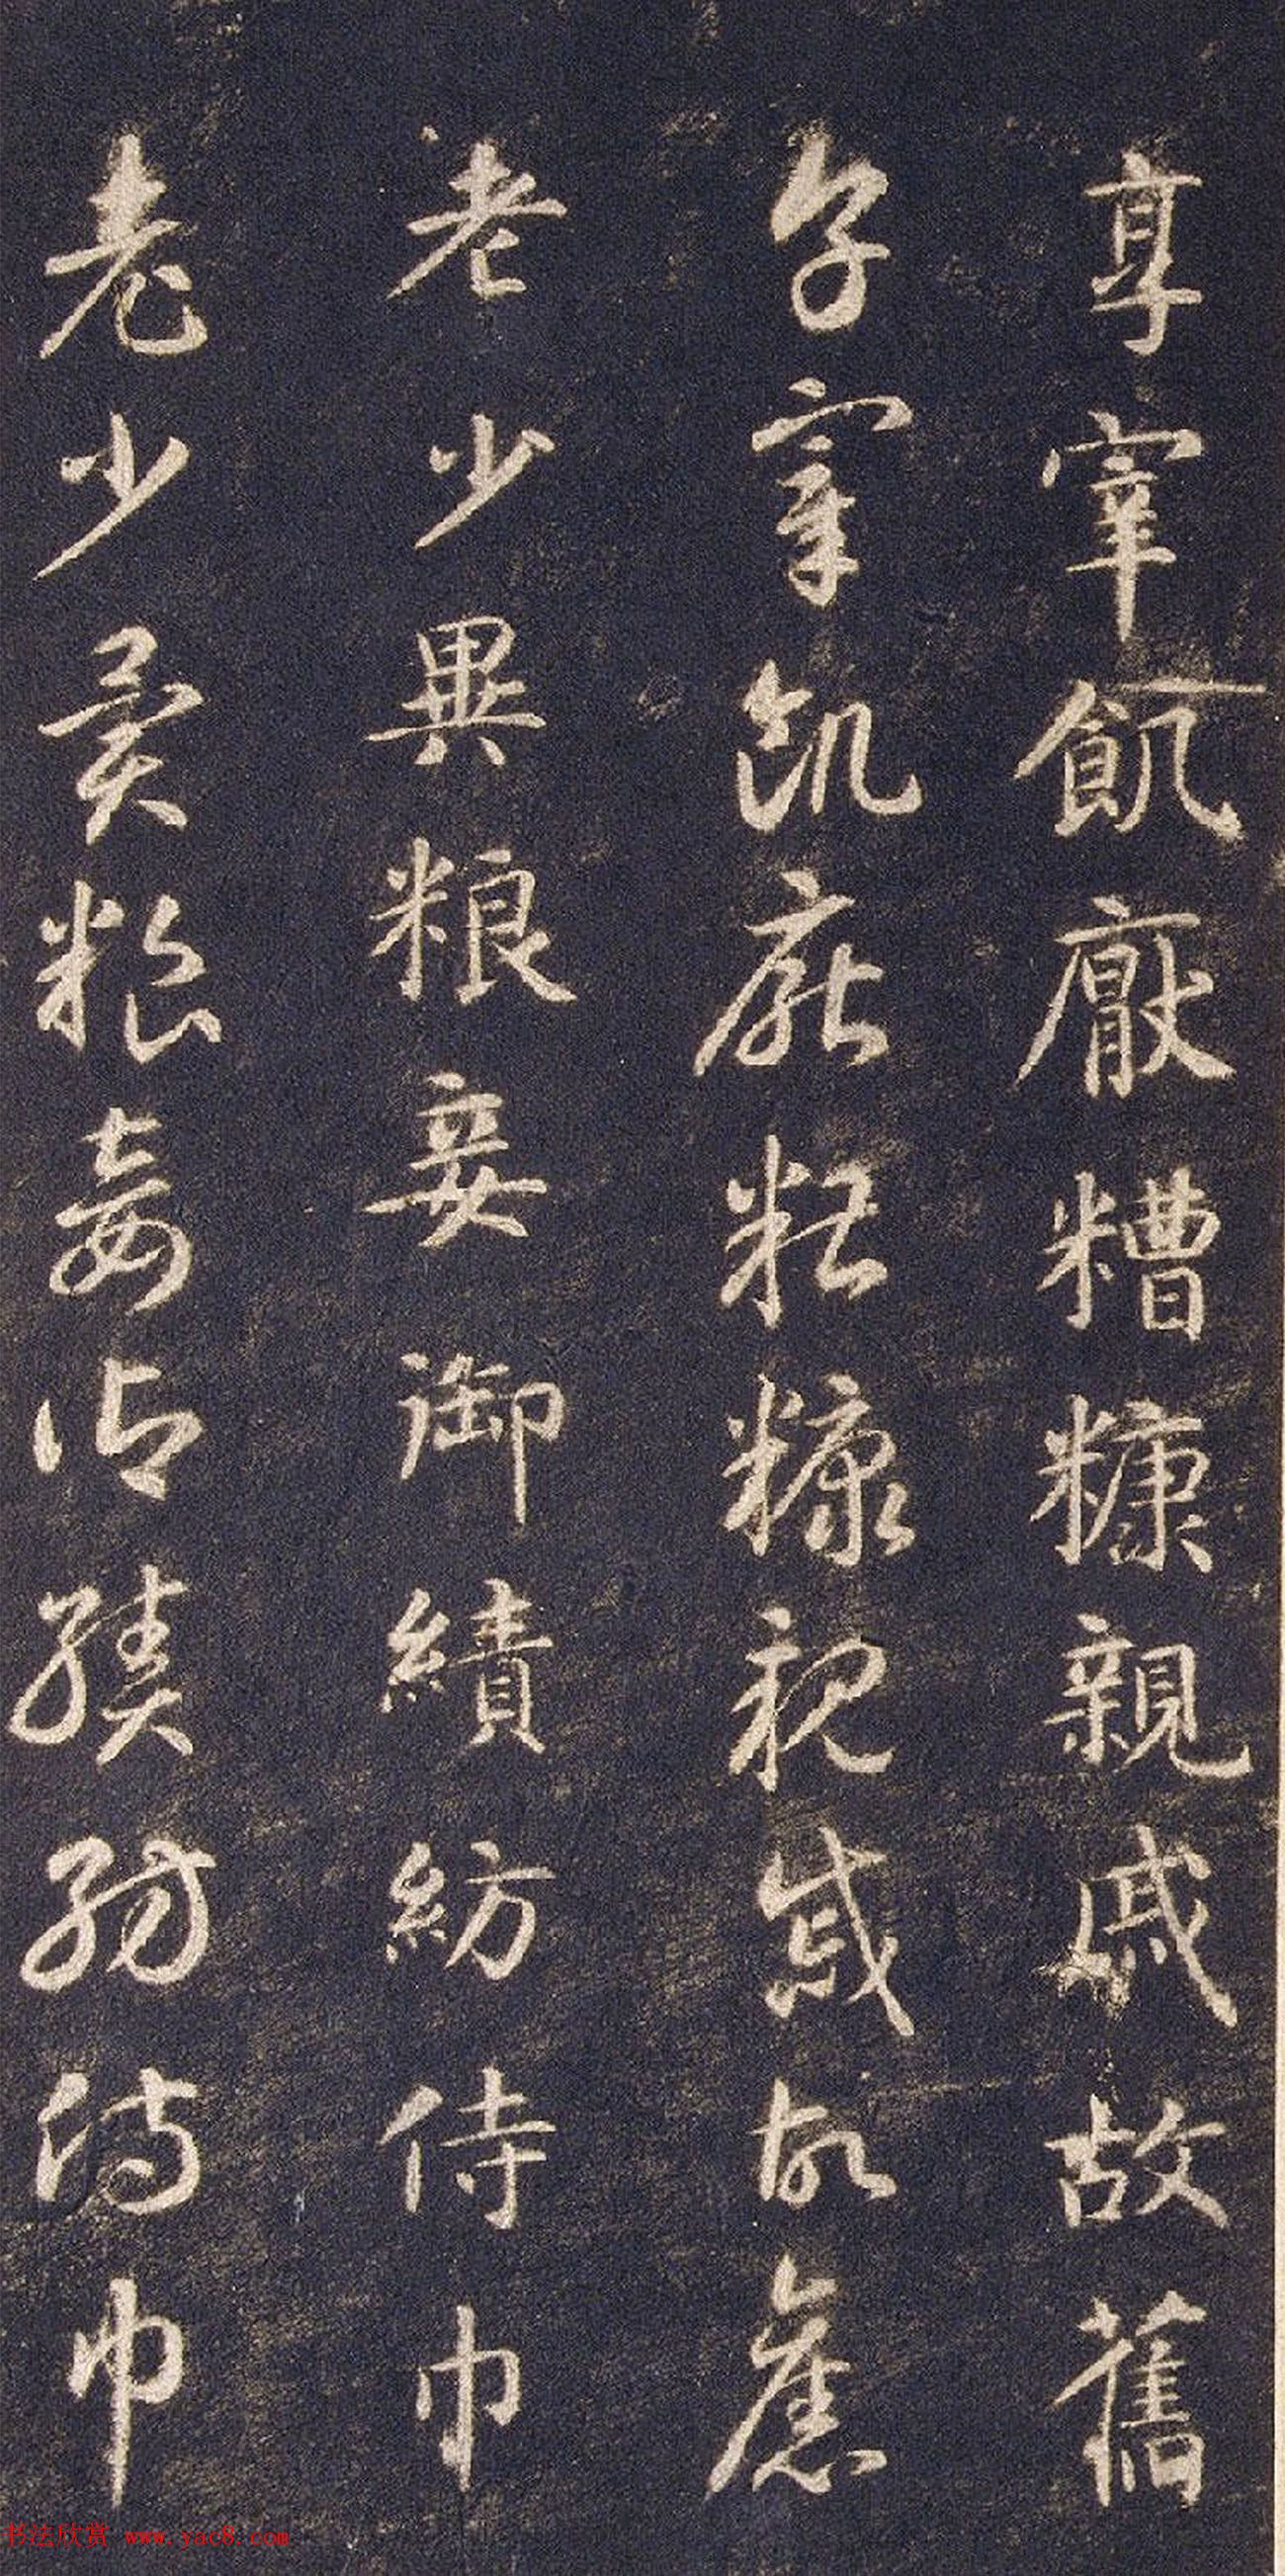 亨宰飢厭糟糠親戚故舊
亨宰飢厭糟糠親戚故舊
老少異粮妾御績紡侍巾
老少異粮妾御績紡侍巾
书法欣赏 www.yac8.com